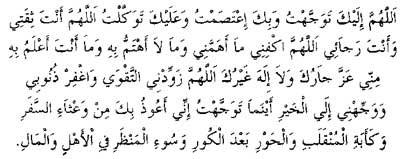 اَللّٰهُمَّ إِلَيْكَ تَوَجَّهْتُ وَبِكَ إِعْتَصَمْتُ وَعَلَيْكَ تَوَكَّلْتُ اَللّٰهُمَّ أَنْتَ ثِقَتِي
وَأَنْتَ رَجَائِي اَللّٰهُمَّ اكْفِنِي مَا أَهَمَّنِي وَمَا لاَ أَهْتَمُّ بِهِ وَمَا أَنْتَ أَعْلَمُ بِهِ
مِنِّي عَزَّ جَارُكَ وَلاَ إِلٰهَ غَيْرُكَ اَللّٰهُمَّ زَوِّدْنِي التَّقْوَي وَاغْفِرْ ذُنُوبِي
وَوَجِّهْنِي إِلَي الْخَيْرِ أَيْنَمَا تَوَجَّهْتُ إِنِّي أَعُوذُ بِكَ مِنْ وَعْثَاءِ السَّفَرِ
وَكَآبَةِ الْمُنْقَلَبِ وَالْحَوْرِ بَعْدَ الْكُورِ وَسُوءِ الْمَنْظَرِ فِي اْلأَهْلِ وَالْمَالِ.